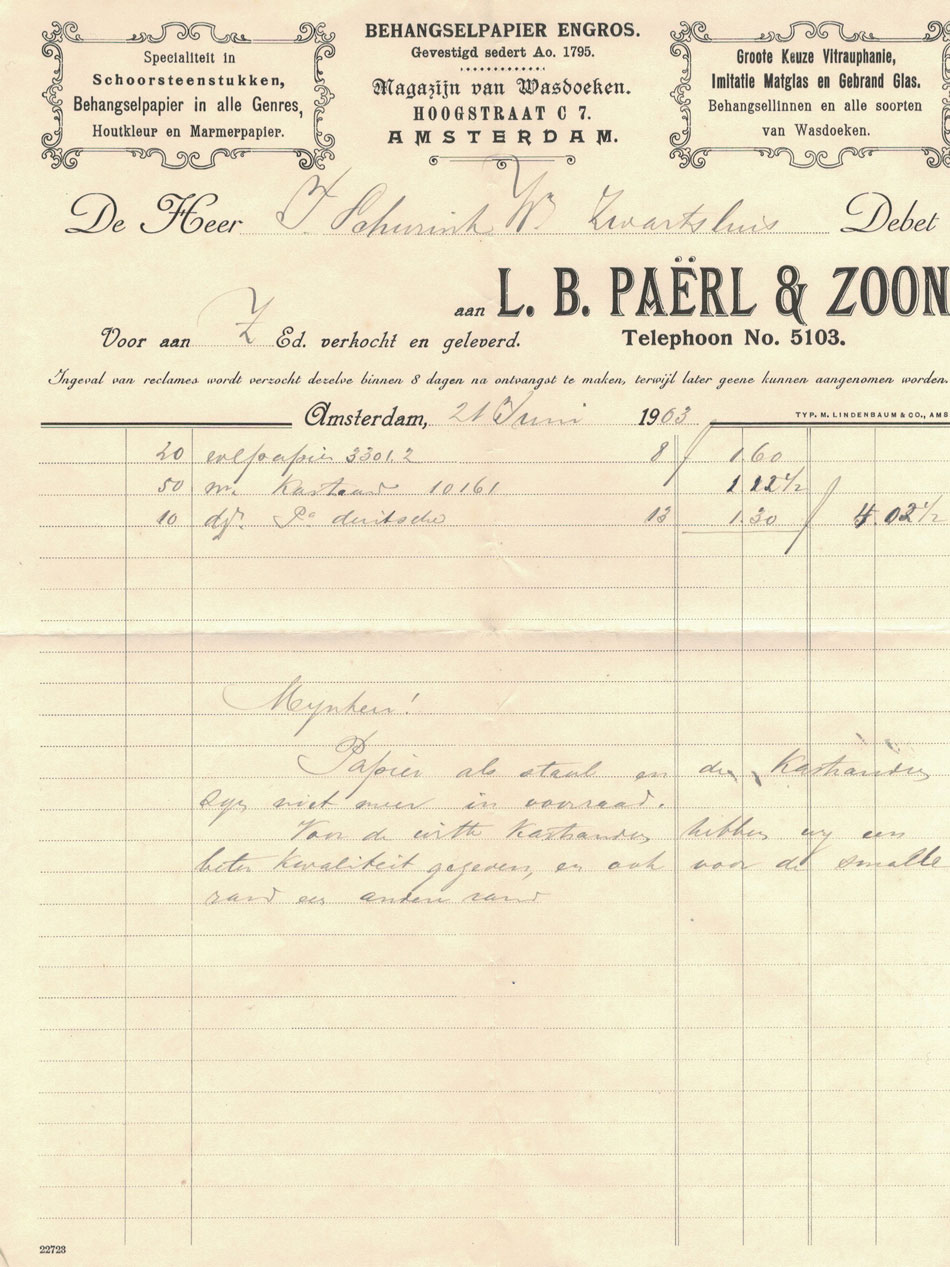 Specialiteit in
Schoorsteenstukken,
Behangselpapier in alle Genres,
Houtkleur en Marmerpapier.
BEHANGSELPAPIER ENGROS.
Gevestigd sedert Ao. 1795.
Magazijn van Wasdoeken.
HOOGSTRAAT C 7.
AMSTERDAM.
Groote Keuze Vitrauphanie,
Imitatie Matglas en Gebrand Glas.
Behangsellinnen en alle soorten
van Wasdoeken.
De Heer Schurink Zwartsluis Debet
aan L. B. PAËRL & ZOON
Voor aan Z Ed. verkocht en geleverd.
Telephoon No. 5103.
Ingeval van reclames wordt verzocht dezelve binnen 8 dagen na ontvangst te maken, terwijl later geene kunnen aangenomen worden.
Amsterdam, 21 Juni 1903
TYP. M. LINDENBAUM & CO., AMS
20 3301.2 8 1.60
50 10161 1 12 1/2
10 duitsche 13 1.30 4.02 1/2
Mynheer!
Papier als staal en de
niet meer in voorraad.
Voor de hebben wy een
beter kwaliteit gegeven, en ook voor de smalle
rand een andere rand
22723